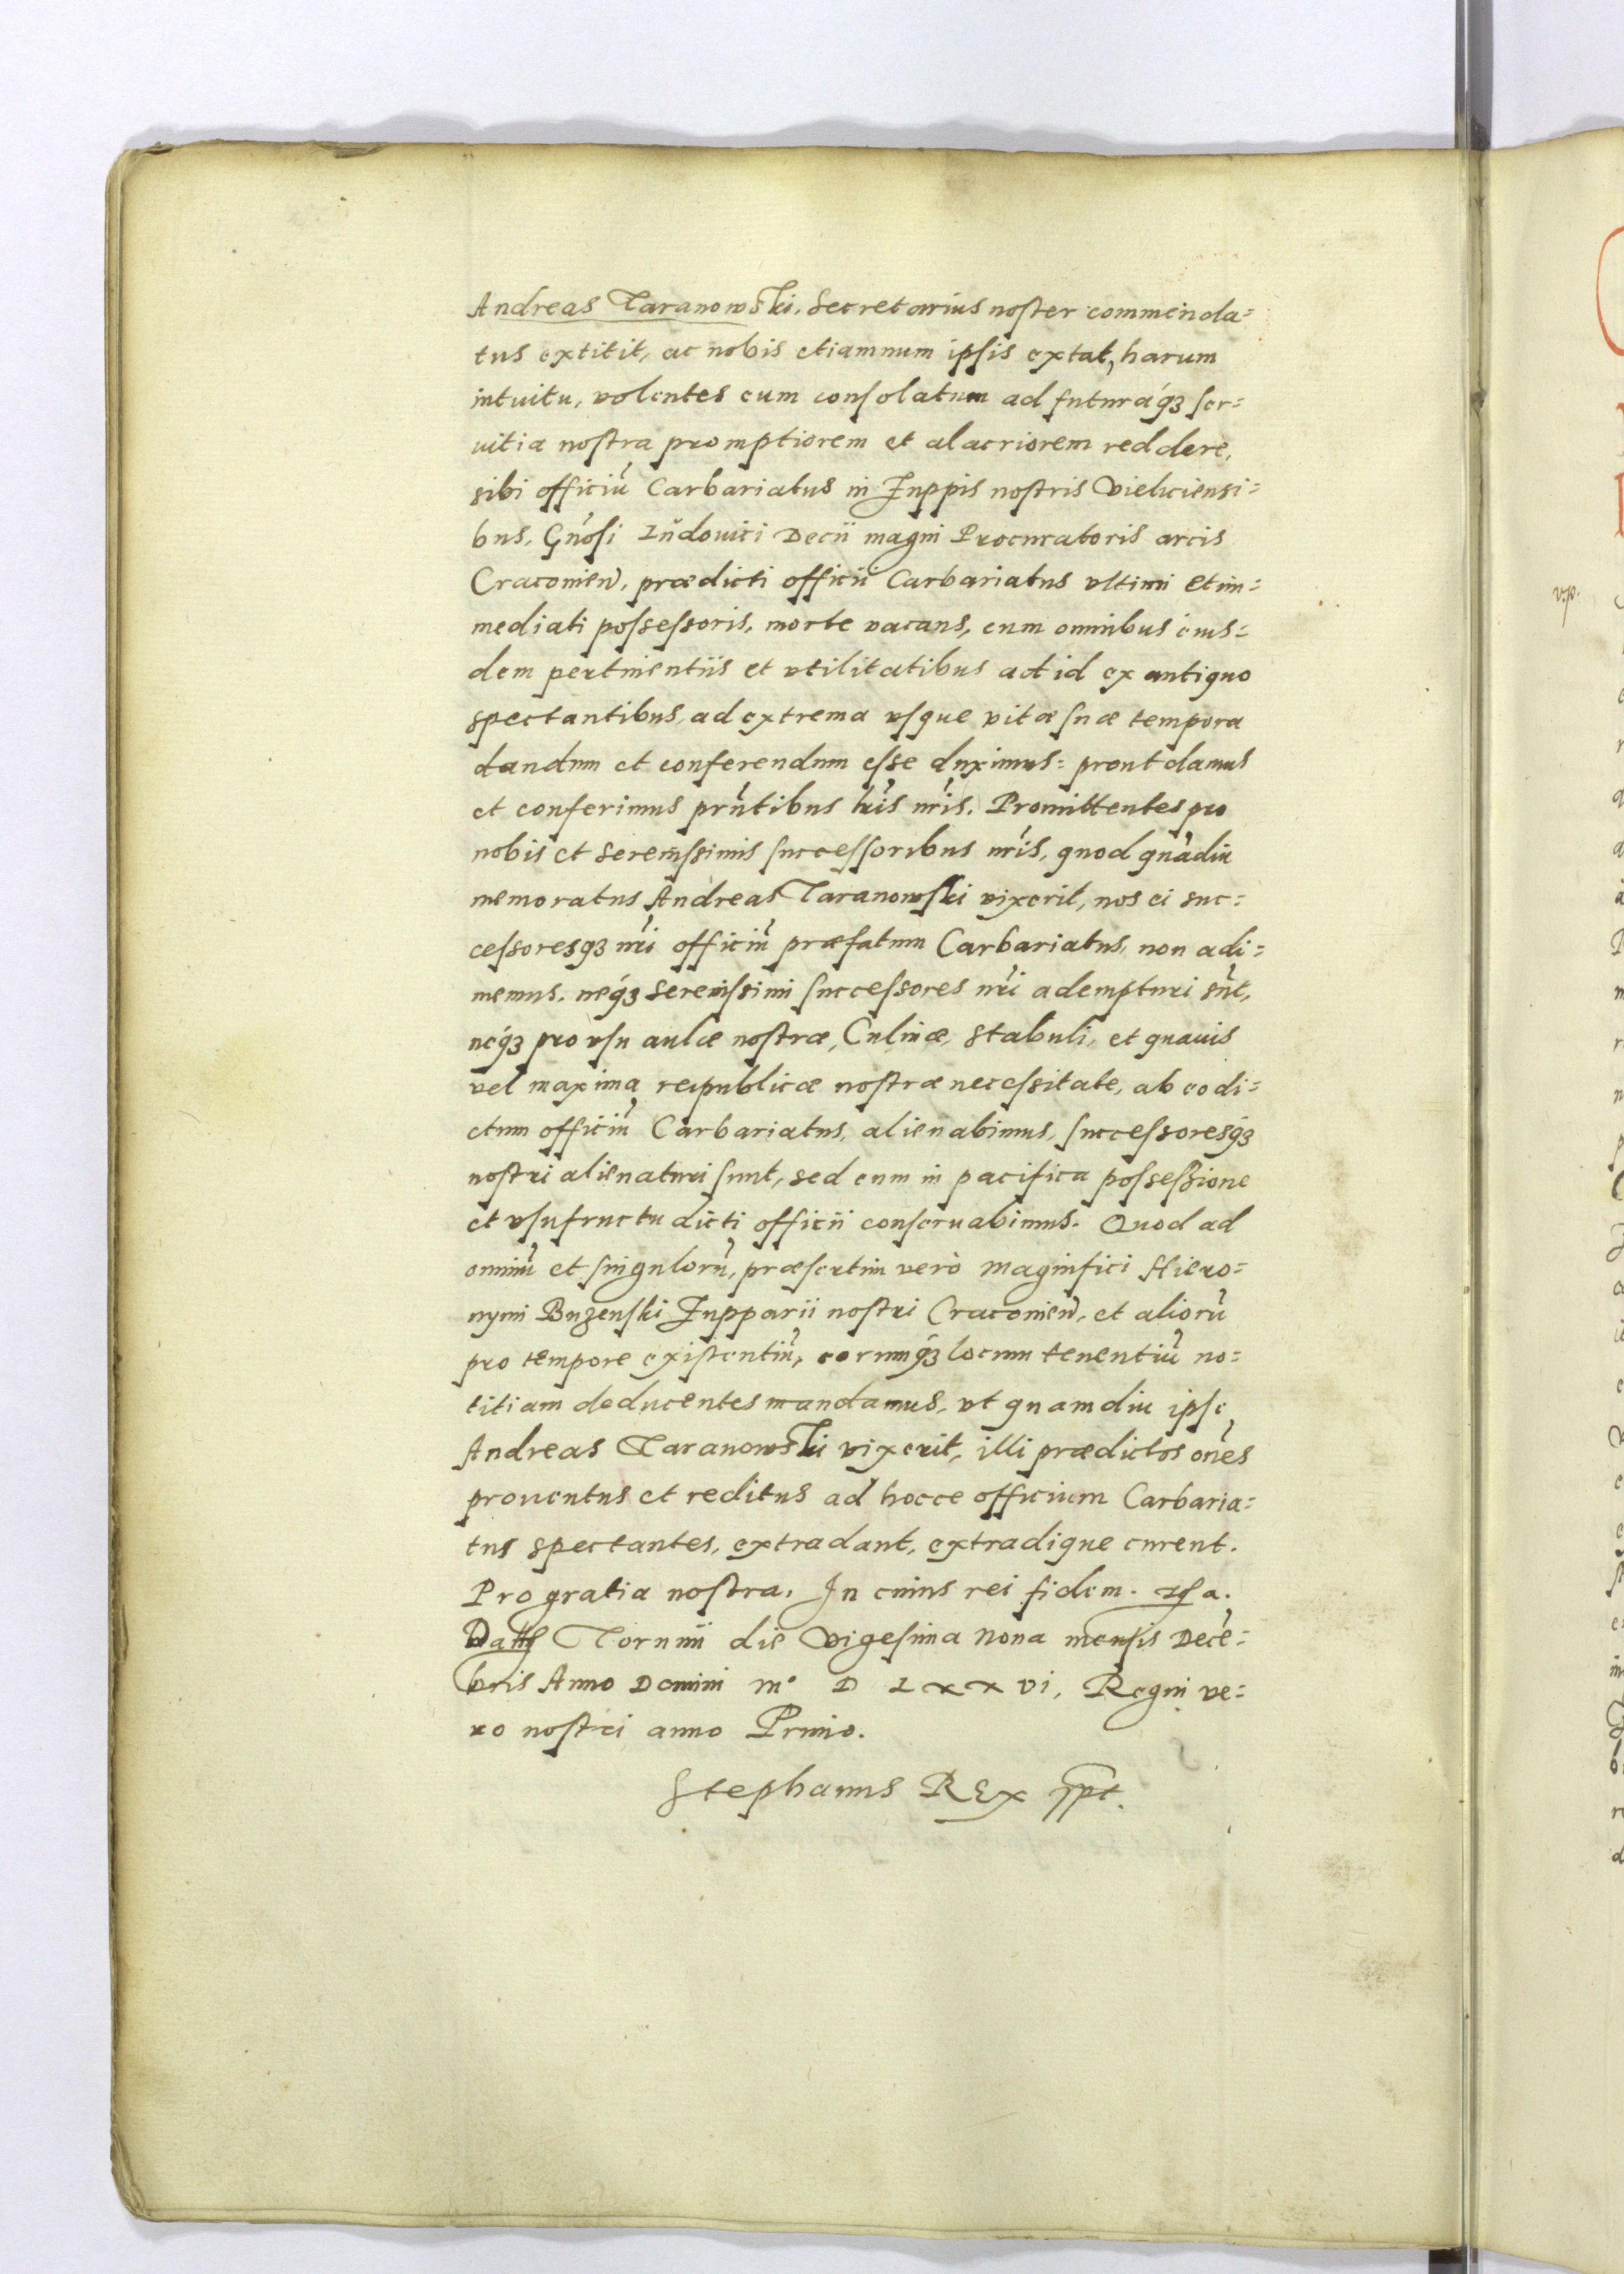 Andreas Taranowski, Secretarius noster commenda=
tus extitit, ac nobis etiamnum ipsis extat, harum
intuitu, volentes eum consolatum ad futuraq́ꝫ ser=
uitia nostra promptiorem et alacriorem reddere,
sibi officiũ Carbariatus in Zuppis nostris Vieliciensi=
bus, Gñosi Ludouici Decii magni Procuratoris arcis
Cracouien̄, prædicti officii Carbariatus vltimi et im=
mediati possessoris, morte vacans, cum omnibus eius=
dem pertinentiis et vtilitatibus ad id ex antiquo
spectantibus, ad extrema vsque vitæ suæ tempora
dandum et conferendum esse duximus: prout damus
et conferimus prñtibus lr̃is nr̃is. Promittentes pro
nobis et Serenissimis successoribus nr̃is, quod quãdiu
memoratus Andreas Taranowski vixerit, nos ei suc=
cessoresqꝫ nr̃i officiũ præfatum Carbariatus, non adi=
memus, neq́ꝫ Serenissimi successores nr̃i adempturi sũt,
neq́ꝫ pro vsu aulæ nostræ, Culinæ, Stabuli, et quauis
vel maxima reipublicæ nostræ necessitate, ab eo di=
ctum officiũ Carbariatus, alienabimus, successoresq́ꝫ
nostri alienaturi sunt, sed eum in pacifica possessione
et vsufructu dicti officii conseruabimus. Quod ad
omniũ et singulorũ, præsertim verò Magnifici Hiero=
nymi Buzenski Zupparii nostri Cracouien̄, et aliorũ
pro tempore existentiũ, eorumq́ꝫ locum tenentiũ no=
titiam deducentes mandamus, vt quamdiu ipse
Andreas Taranowski vixerit, illi prædictos oñes
prouentus et reditus ad hocce officium Carbaria=
tus spectantes, extradant, extradique curent.
Pro gratia nostra. In cuius rei fidem. &a.
Datt Torunii die Vigesima Nona mensis Decẽ=
bris Anno Domini M° D LXXVI, Regni ve=
ro nostri anno Primo.
Stephanus REx sspt.
v.p.